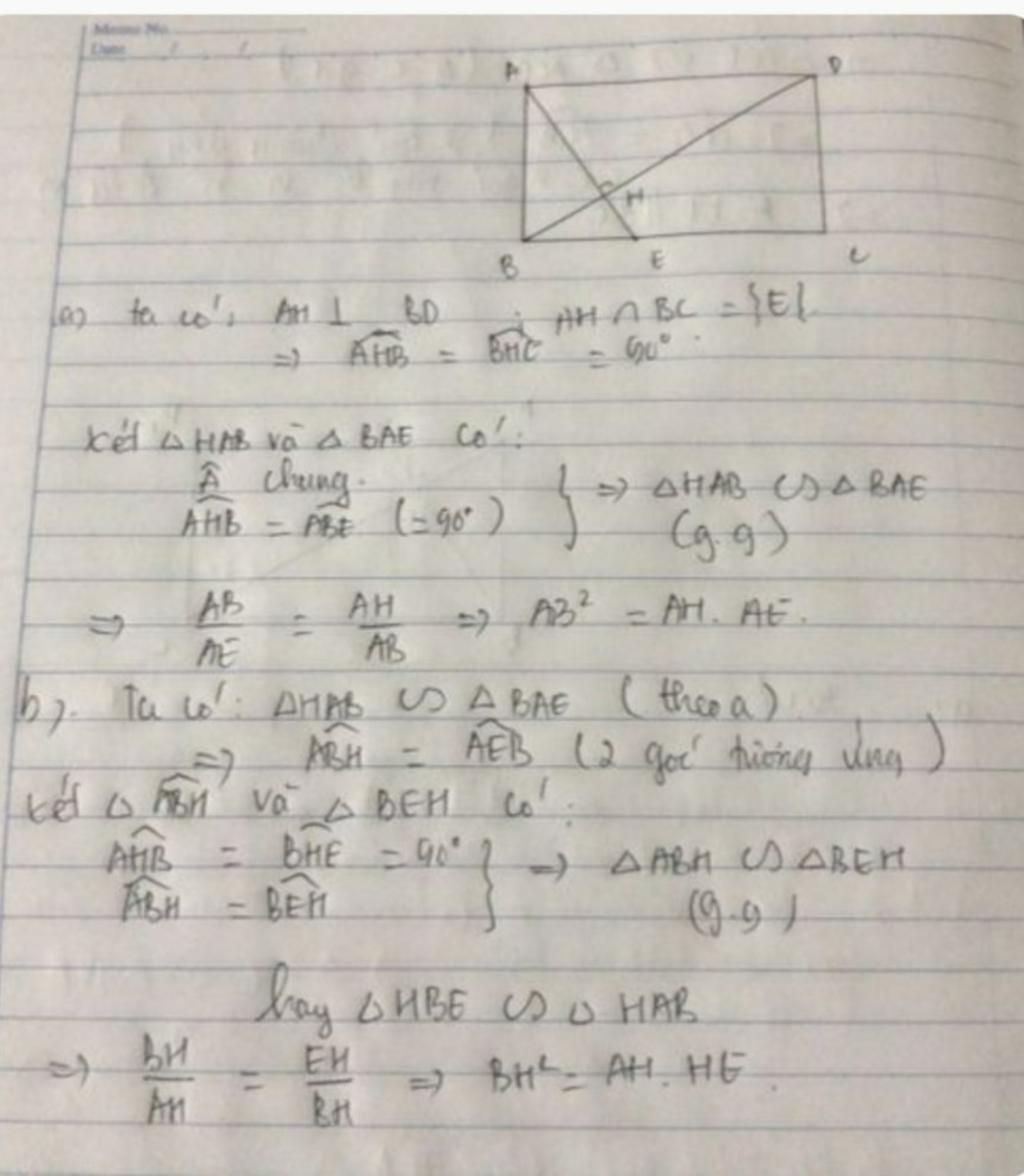 Memo No.
Date / /
A D
H
B E C
a) ta có: AH ⊥ BD ; AH ∩ BC = {E}
=> \widehat{AHB} = \widehat{BHE} = 90°.
Xét △ HAB và △ BAE có:
\widehat{A} chung.
\widehat{AHB} = \widehat{ABE} (= 90°) } => △HAB ∽ △ BAE
(g.g)
=> AB/AE = AH/AB => AB² = AH. AE.
b). Ta có: △HAB ∽ △ BAE (theo a)
=> \widehat{ABH} = \widehat{AEB} (2 góc tương ứng)
Xét △ \widehat{ABH} và △ BEH có:
\widehat{AHB} = \widehat{BHE} = 90° } => △ABH ∽ △BEH
\widehat{ABH} = \widehat{BEH} (g.g)
hay △HBE ∽ △ HAB
=> BH/AH = EH/BH => BH² = AH. HE.